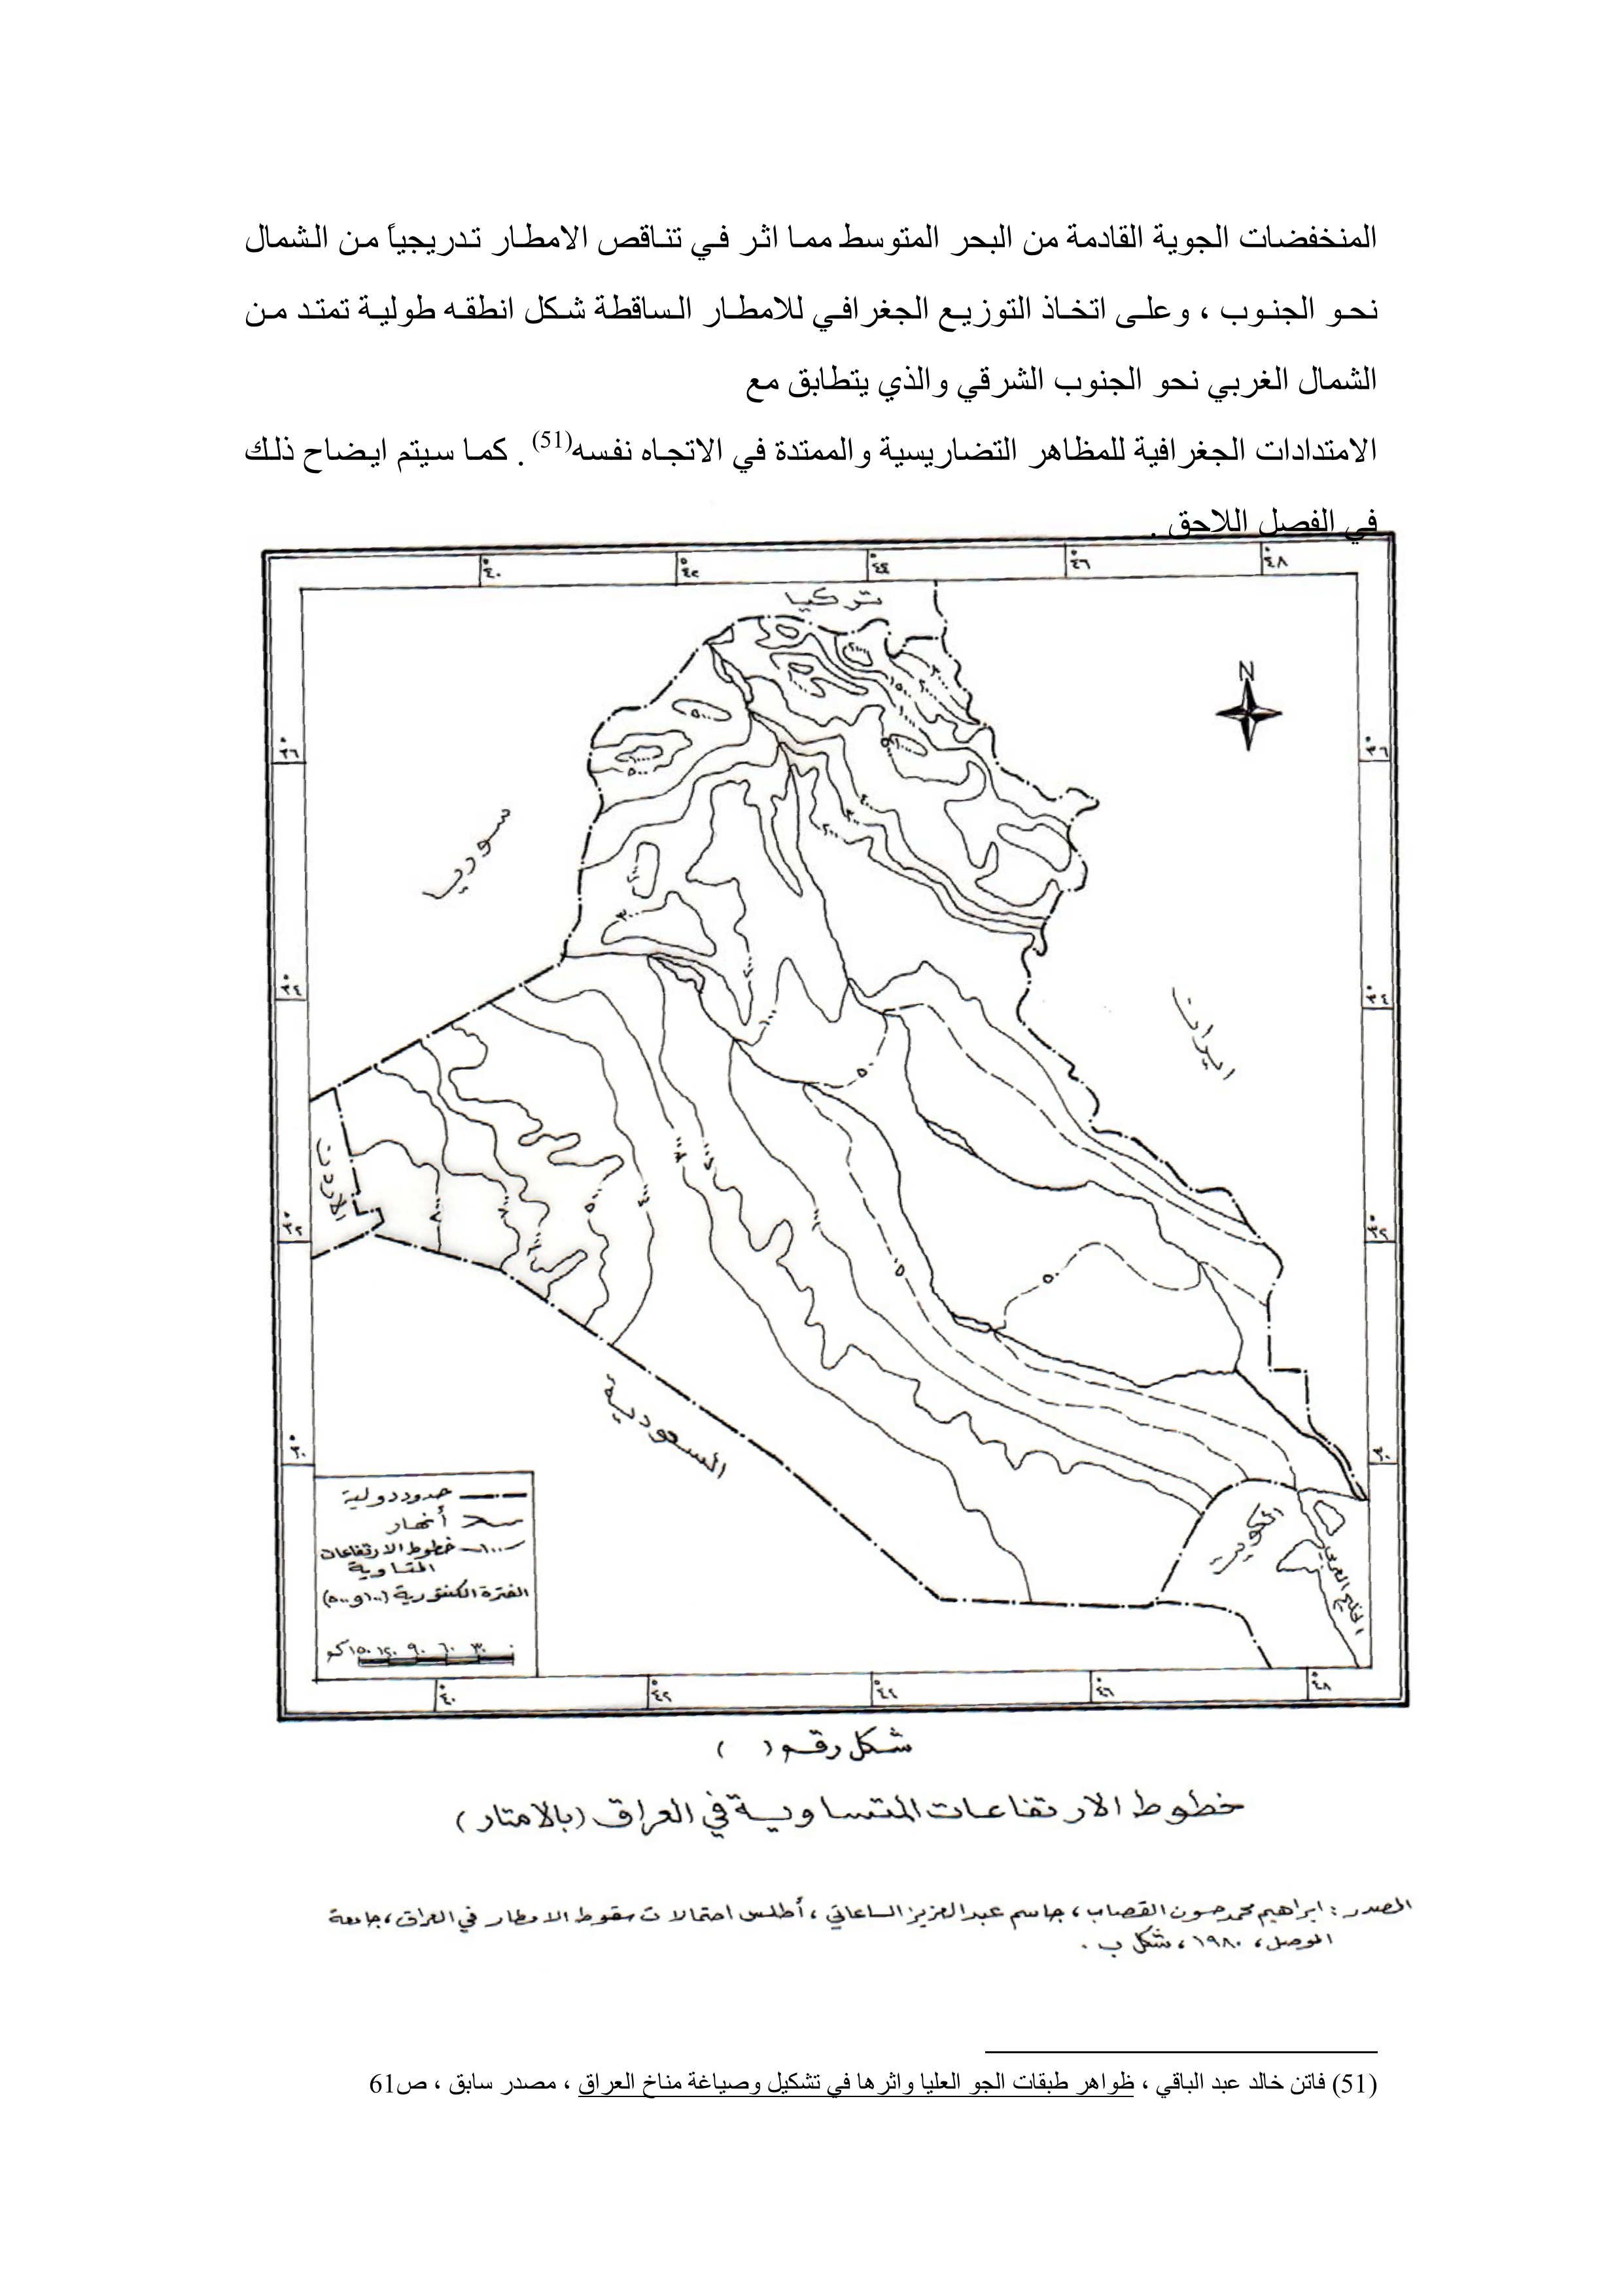 المنخفضات الجوية القادمة من البحر المتوسط مما اثر في تناقص الامطار تدريجياً من الشمال
نحو الجنوب ، وعلى اتخاذ التوزيع الجغرافي للامطار الساقطة شكل انطقه طولية تمتد من
الشمال الغربي نحو الجنوب الشرقي والذي يتطابق مع
الامتدادات الجغرافية للمظاهر التضاريسية والممتدة في الاتجاه نفسه(51) . كما سيتم ايضاح ذلك
في الفصل اللاحق .
٤٠° ٤٢° ٤٤° ٤٦° ٤٨°
تركيا
N
٣٦° ٣٦°
سوريا
٣٤° ٣٤°
ايران
الاردن
٣٢° ٣٢°
السعودية
٣٠° ٣٠°
الكويت
الخليج العربي
حدود دولية
أنهار
١٠٠ خطوط الارتفاعات
المتساوية
الفترة الكنتورية (١٠٠و٥٠٠)
٠ ٣٠ ٦٠ ٩٠ ١٢٠ ١٥٠كم
٤٠° ٤٢° ٤٤° ٤٦° ٤٨°
شكل رقم ( )
خطوط الارتفاعات المتساوية في العراق (بالامتار)
المصدر : ابراهيم محمد حسون القصاب ، جاسم عبد العزيز الساعاتي ، أطلس احتمالات سقوط الامطار في العراق ، جامعة
الموصل ، ١٩٨٠ ، شكل ب .
(51) فاتن خالد عبد الباقي ، ظواهر طبقات الجو العليا واثرها في تشكيل وصياغة مناخ العراق ، مصدر سابق ، ص61